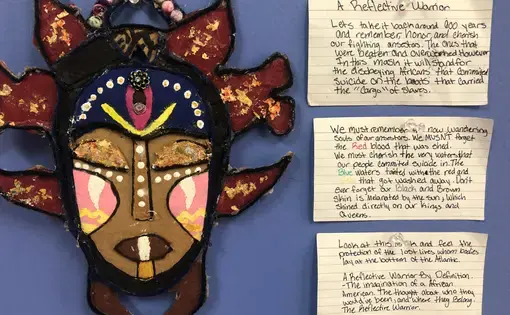 A Reflective Warrior
Lets take it back around 900 years
and remember, honor, and cherish
our fighting ancestors. The ones that
were beaten and overcombed. However
In this mask it will stand for
the disobeying Africans that committed
suicide on the boats that carried
the "cargo" of slaves.
We must remember now wandering
souls of our ancestors. We MUSNT forget
the Red blood that was shed.
We most cherish the very waters that
our people committed suicide in. The
Blue waters tainted with the red and
that got washed away. Don't
ever forget our black and Brown
skin is melanated by the sun, which
shined directly on our Kings and
Queens.
Look at this mask and feel the
protection of the lost lives whom bodies
lay at the bottom of the Atlantic.
A Reflective Warrior By Definition
-The imagination of a African
American. The thought about who they
would've been, and where they belong.
The Reflective Warrior.